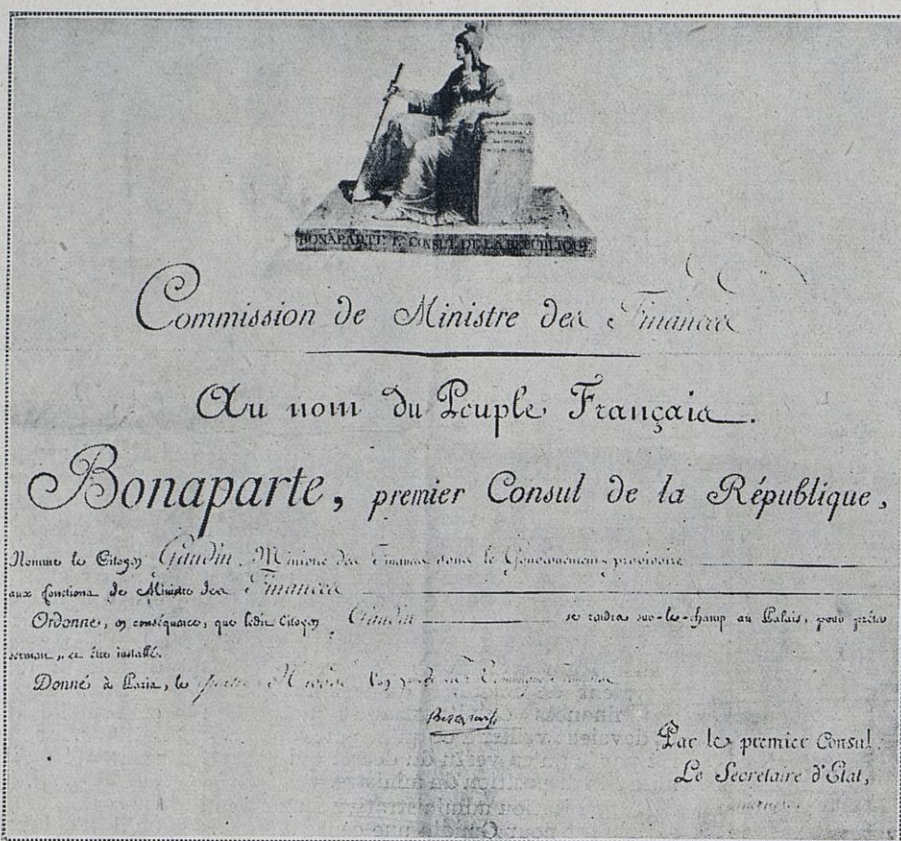 BONAPARTE 1er CONSUL DE LA REPUBLIQUE
Commission de Ministre des Finances
Au nom du Peuple Français.
Bonaparte, premier Consul de la République,
Nomme le Citoyen Gaudin, Ministre des Finances sous le Gouvernement provisoire
aux fonctions de Ministre des Finances
Ordonne, en conséquence, que ledit Citoyen Gaudin se rendra sur-le-champ au Palais, pour prêter
serment, et être installé.
Donné à Paris, le Nivôse
Bonaparte
Par le premier Consul
Le Secrétaire d'Etat,